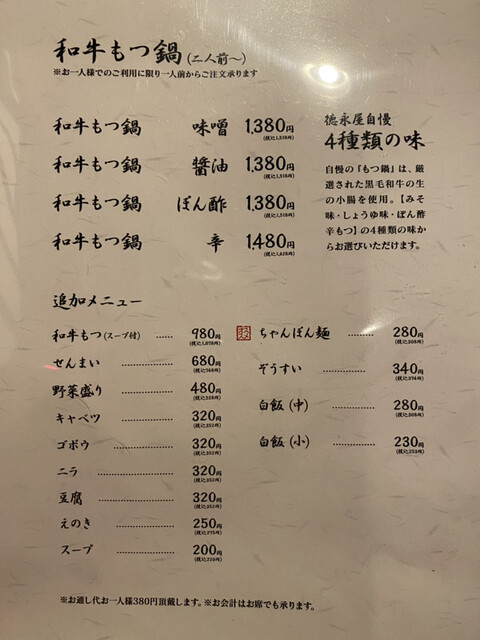 和牛もつ鍋(二人前〜)
※お一人様でのご利用に限り一人前からご注文承ります
和牛もつ鍋 味噌 1,380円
(税込1,518円)
和牛もつ鍋 醤油 1,380円
(税込1,518円)
和牛もつ鍋 ぽん酢 1,380円
(税込1,518円)
和牛もつ鍋 辛 1,480円
(税込1,628円)
徳永屋自慢
4種類の味
自慢の『もつ鍋』は、厳
選された黒毛和牛の生
の小腸を使用。【みそ
味・しょうゆ味・ぽん酢
辛もつ】の4種類の味か
らお選びいただけます。
追加メニュー
和牛もつ(スープ付) 980円
(税込1,078円)
せんまい 680円
(税込748円)
野菜盛り 480円
(税込528円)
キャベツ 320円
(税込352円)
ゴボウ 320円
(税込352円)
ニラ 320円
(税込352円)
豆腐 320円
(税込352円)
えのき 250円
(税込275円)
スープ 200円
(税込220円)
ちゃんぽん麺 280円
(税込308円)
ぞうすい 340円
(税込374円)
白飯(中) 280円
(税込308円)
白飯(小) 230円
(税込253円)
※お通し代お一人様380円頂戴します。※お会計はお席でも承ります。